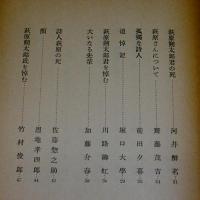 萩原朔太郎君の死 河井酔茗
萩原さんについて 齋藤茂吉
孤獨な詩人 前田夕暮
追悼記 堀口大學
萩原朔太郎君を悼む 川路柳虹
大いなる先輩 加藤介春
詩人萩原の死 佐藤惣之助
顏 恩地孝四郎
萩原朔太郎氏を悼む 竹村俊郎